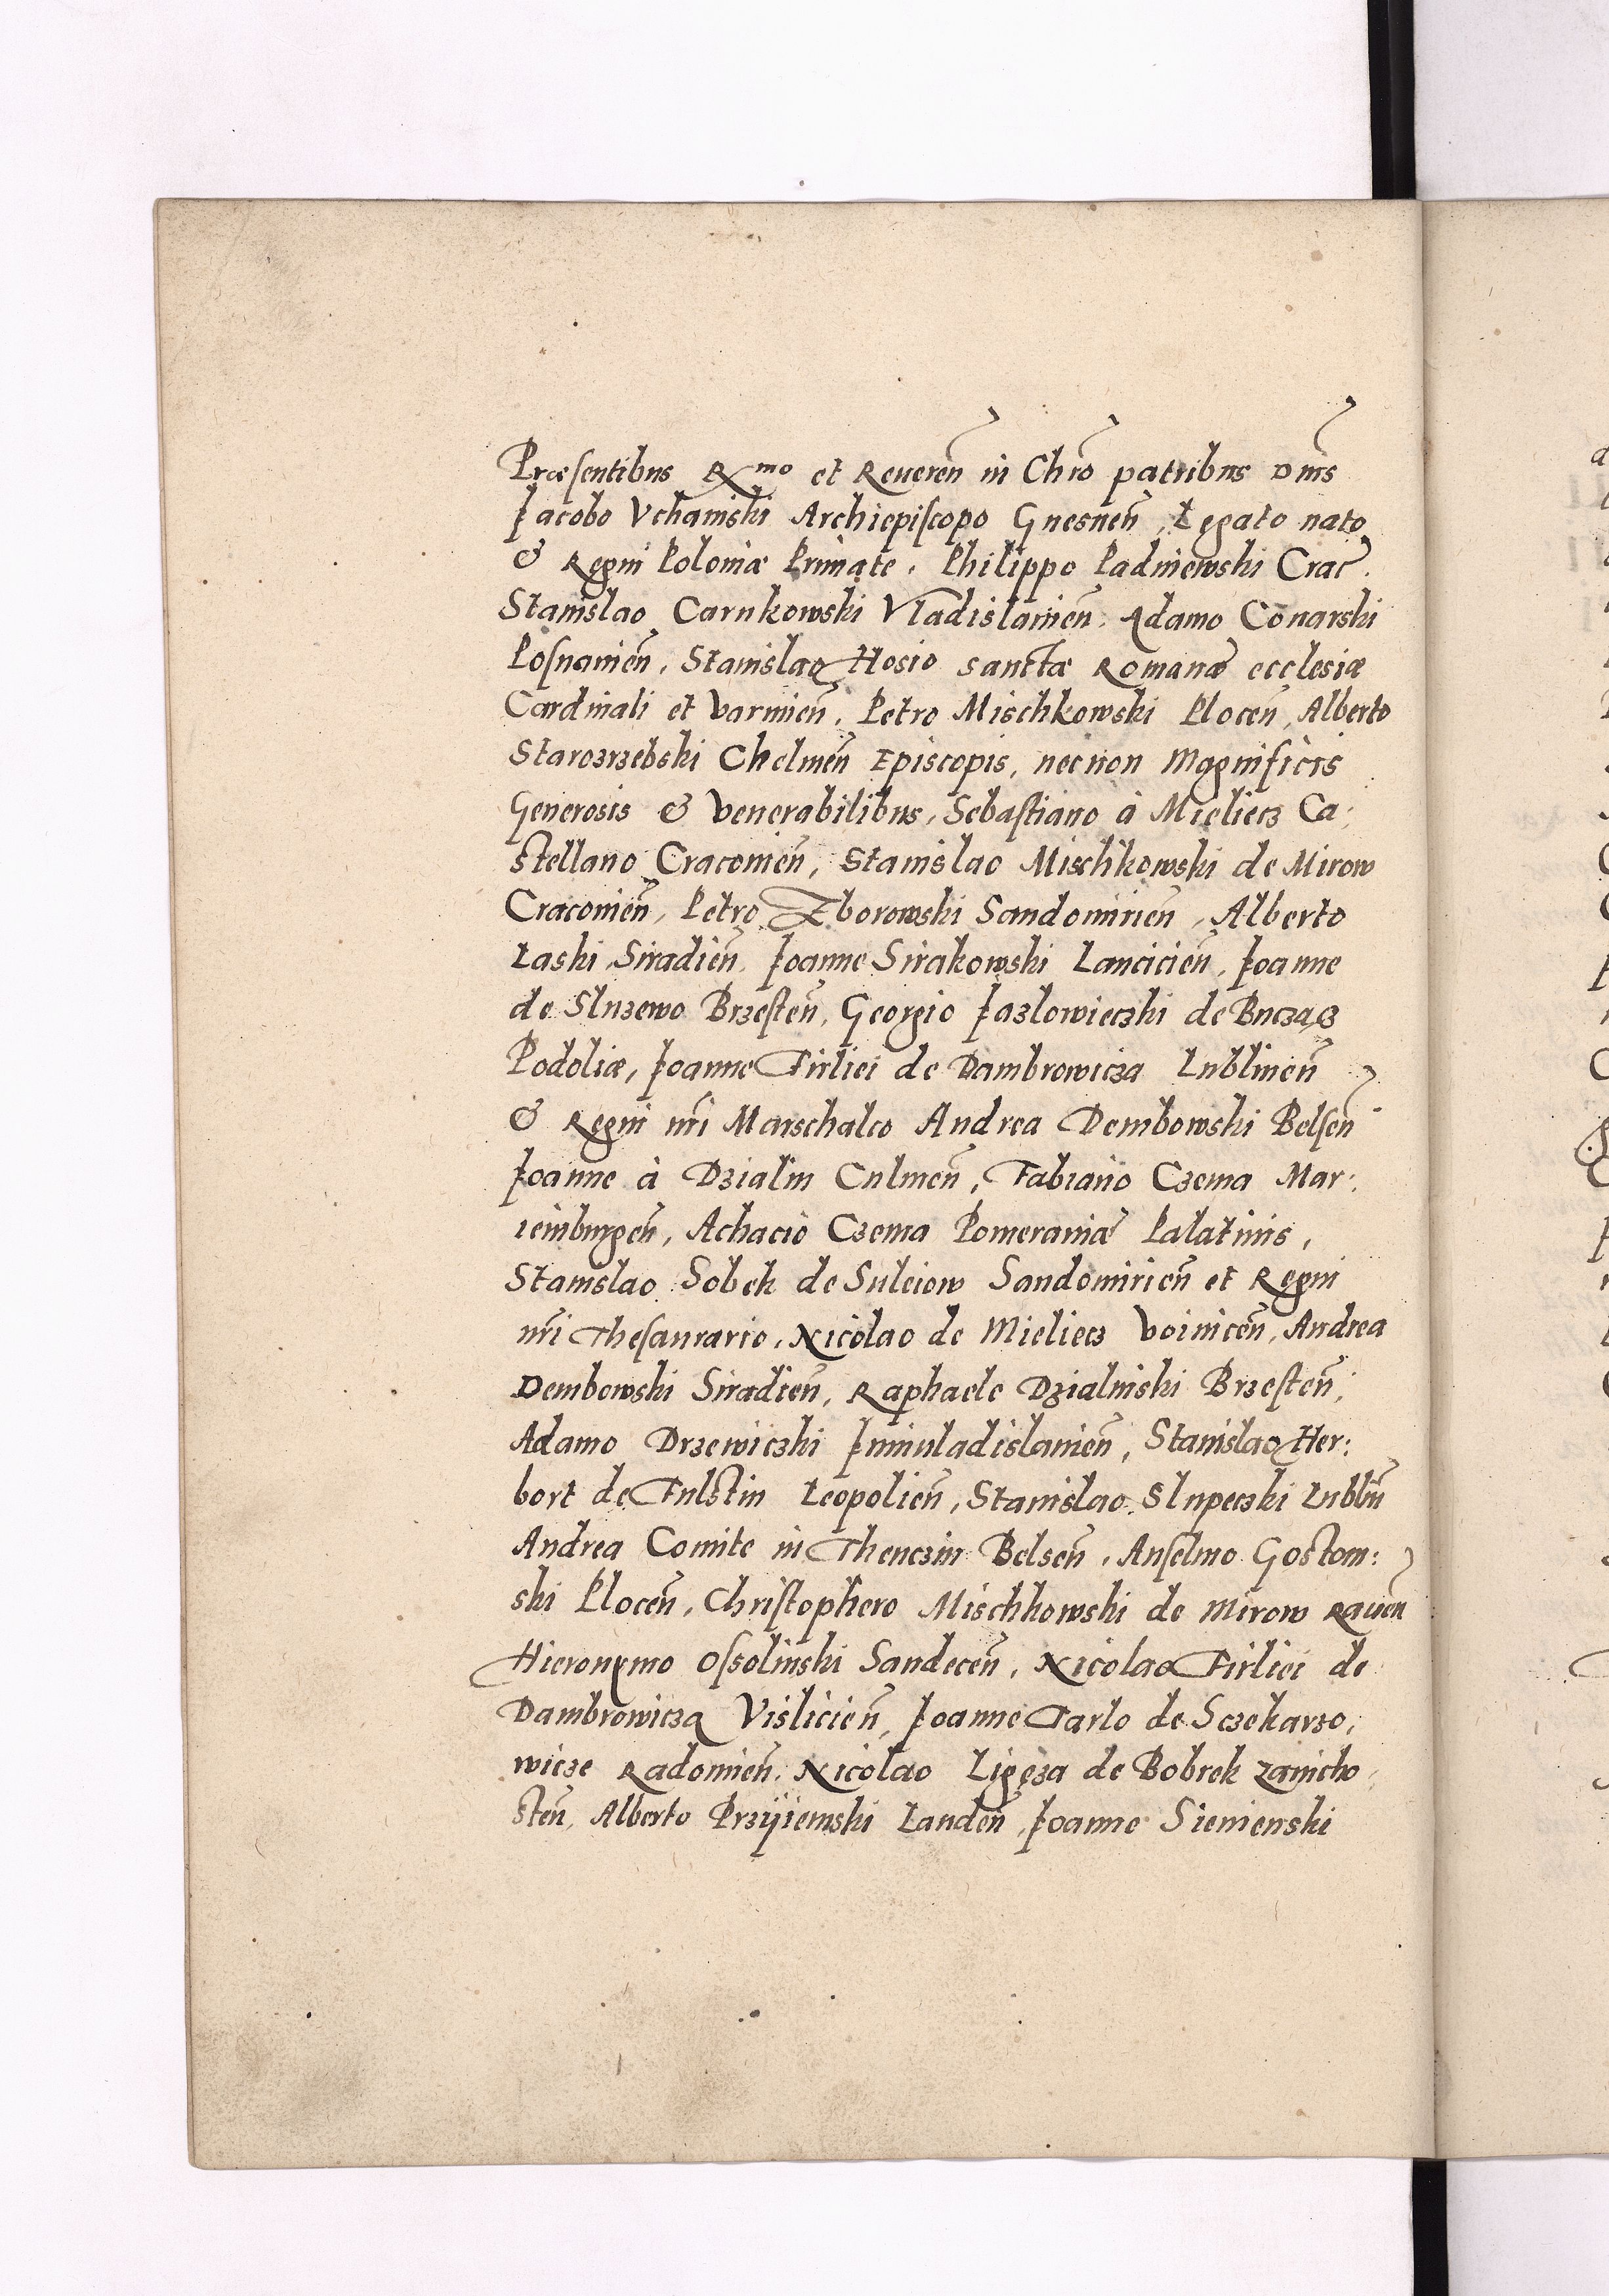 Præsentibus Rmo et Reueren̄ in Chr̄o patribus Dnīs
Jacobo Vchanski Archiepiscopo Gnesnen̄, Legato nato
& Regni Poloniæ Primate. Philippo Padniewski Crac̄.
Stanislao Carnkowski Vladislauien̄. Adamo Conarski
Posnanien̄, Stanislao Hosio sanctæ Romanæ ecclesiæ
Cardinali et Varmien̄, Petro Mischkowski Plocen̄, Alberto
Starozrzebski Chelmen̄ Episcopis, necnon Magnificis
Generosis & Venerabilibus, Sebastiano à Mieliecz Ca:
stellano Cracouien̄, Stanislao Mischkowski de Mirow
Cracouien̄, Petro Zborowski Sandomirien̄, Alberto
Laski Siradien̄, Joanne Sirakowski Lancicien̄, Joanne
de Sluzewo Brzesten̄, Georgio Jazlowieczki de Buczacz
Podoliæ, Joanne Firliei de Dambrowicza Lublinen̄
& Regni nr̄i Marschalco Andrea Dembowski Belsen̄
Joanne à Dzialin Culmen̄, Fabiano Czema Mar:
ieinburgen̄, Achacio Czema Pomeraniæ Palatinis,
Stanislao Sobek de Suleiow Sandomirien̄ et Regni
nr̄i Thesaurario, Nicolao de Mieliecz Voinicen̄, Andrea
Dembowski Siradien̄, Raphaele Dzialinski Brzesten̄,
Adamo Drzewiczki Juniuladislauien̄, Stanislao Her:
bort de Fulstin Leopolien̄, Stanislao Slupeczki Lublīn
Andrea Comite in Thenczin Belsen̄, Anselmo Gostom:
ski Plocen̄, Christophero Mischkowski de Mirow Rauen̄
Hieronymo Ossolinski Sandecen̄, Nicolao Firliei de
Dambrowicza Vislicien̄, Joanne Tarlo de Sczekarzo,
wicze Radomien̄, Nicolao Ligęza de Bobrek Zawicho
sten̄, Alberto Przÿiemski Landen̄, Joanne Sienienski